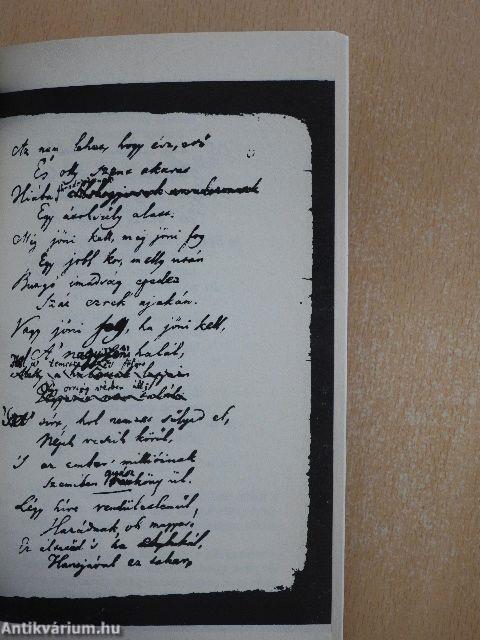 Az nem lehet, hogy ész, erő
És olly szent akarat
Hiába
Egy átoksúly alatt.
Még jőni kell, még jőni fog
Egy jobb kor, melly után
Buzgó imádság epedez
Száz ezrek ajakán.
Vagy jőni fog, ha jőni kell,
A' nagyszerű halál,
Hol a' temetkezés fölött
Egy ország vérben áll
'S a' sírt, hol nemzet sűlyed el,
Népek veszik körűl,
'S az ember millióinak
Szemében gyász köny űl.
Légy híve rendületlenűl,
Hazádnak, oh magyar,
Ez éltetőd 's ha elbukál,
Hantjával ez takar,
Antikvárium.hu